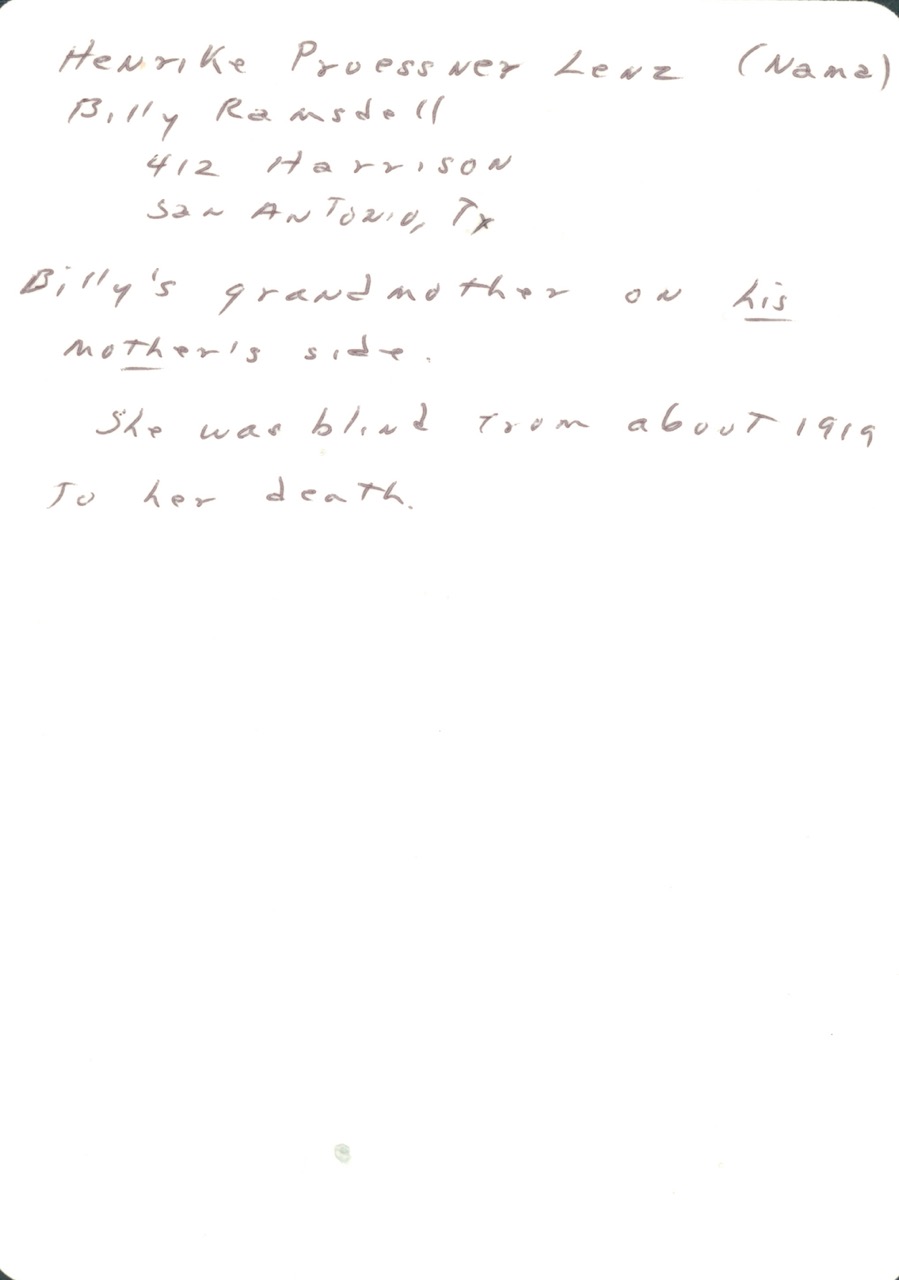 Henrike Proessner Lenz (Nama)
Billy Ramsdell
412 Harrison
San Antonio, Tx
Billy's grandmother on his
mother's side.
She was blind from about 1919
To her death.